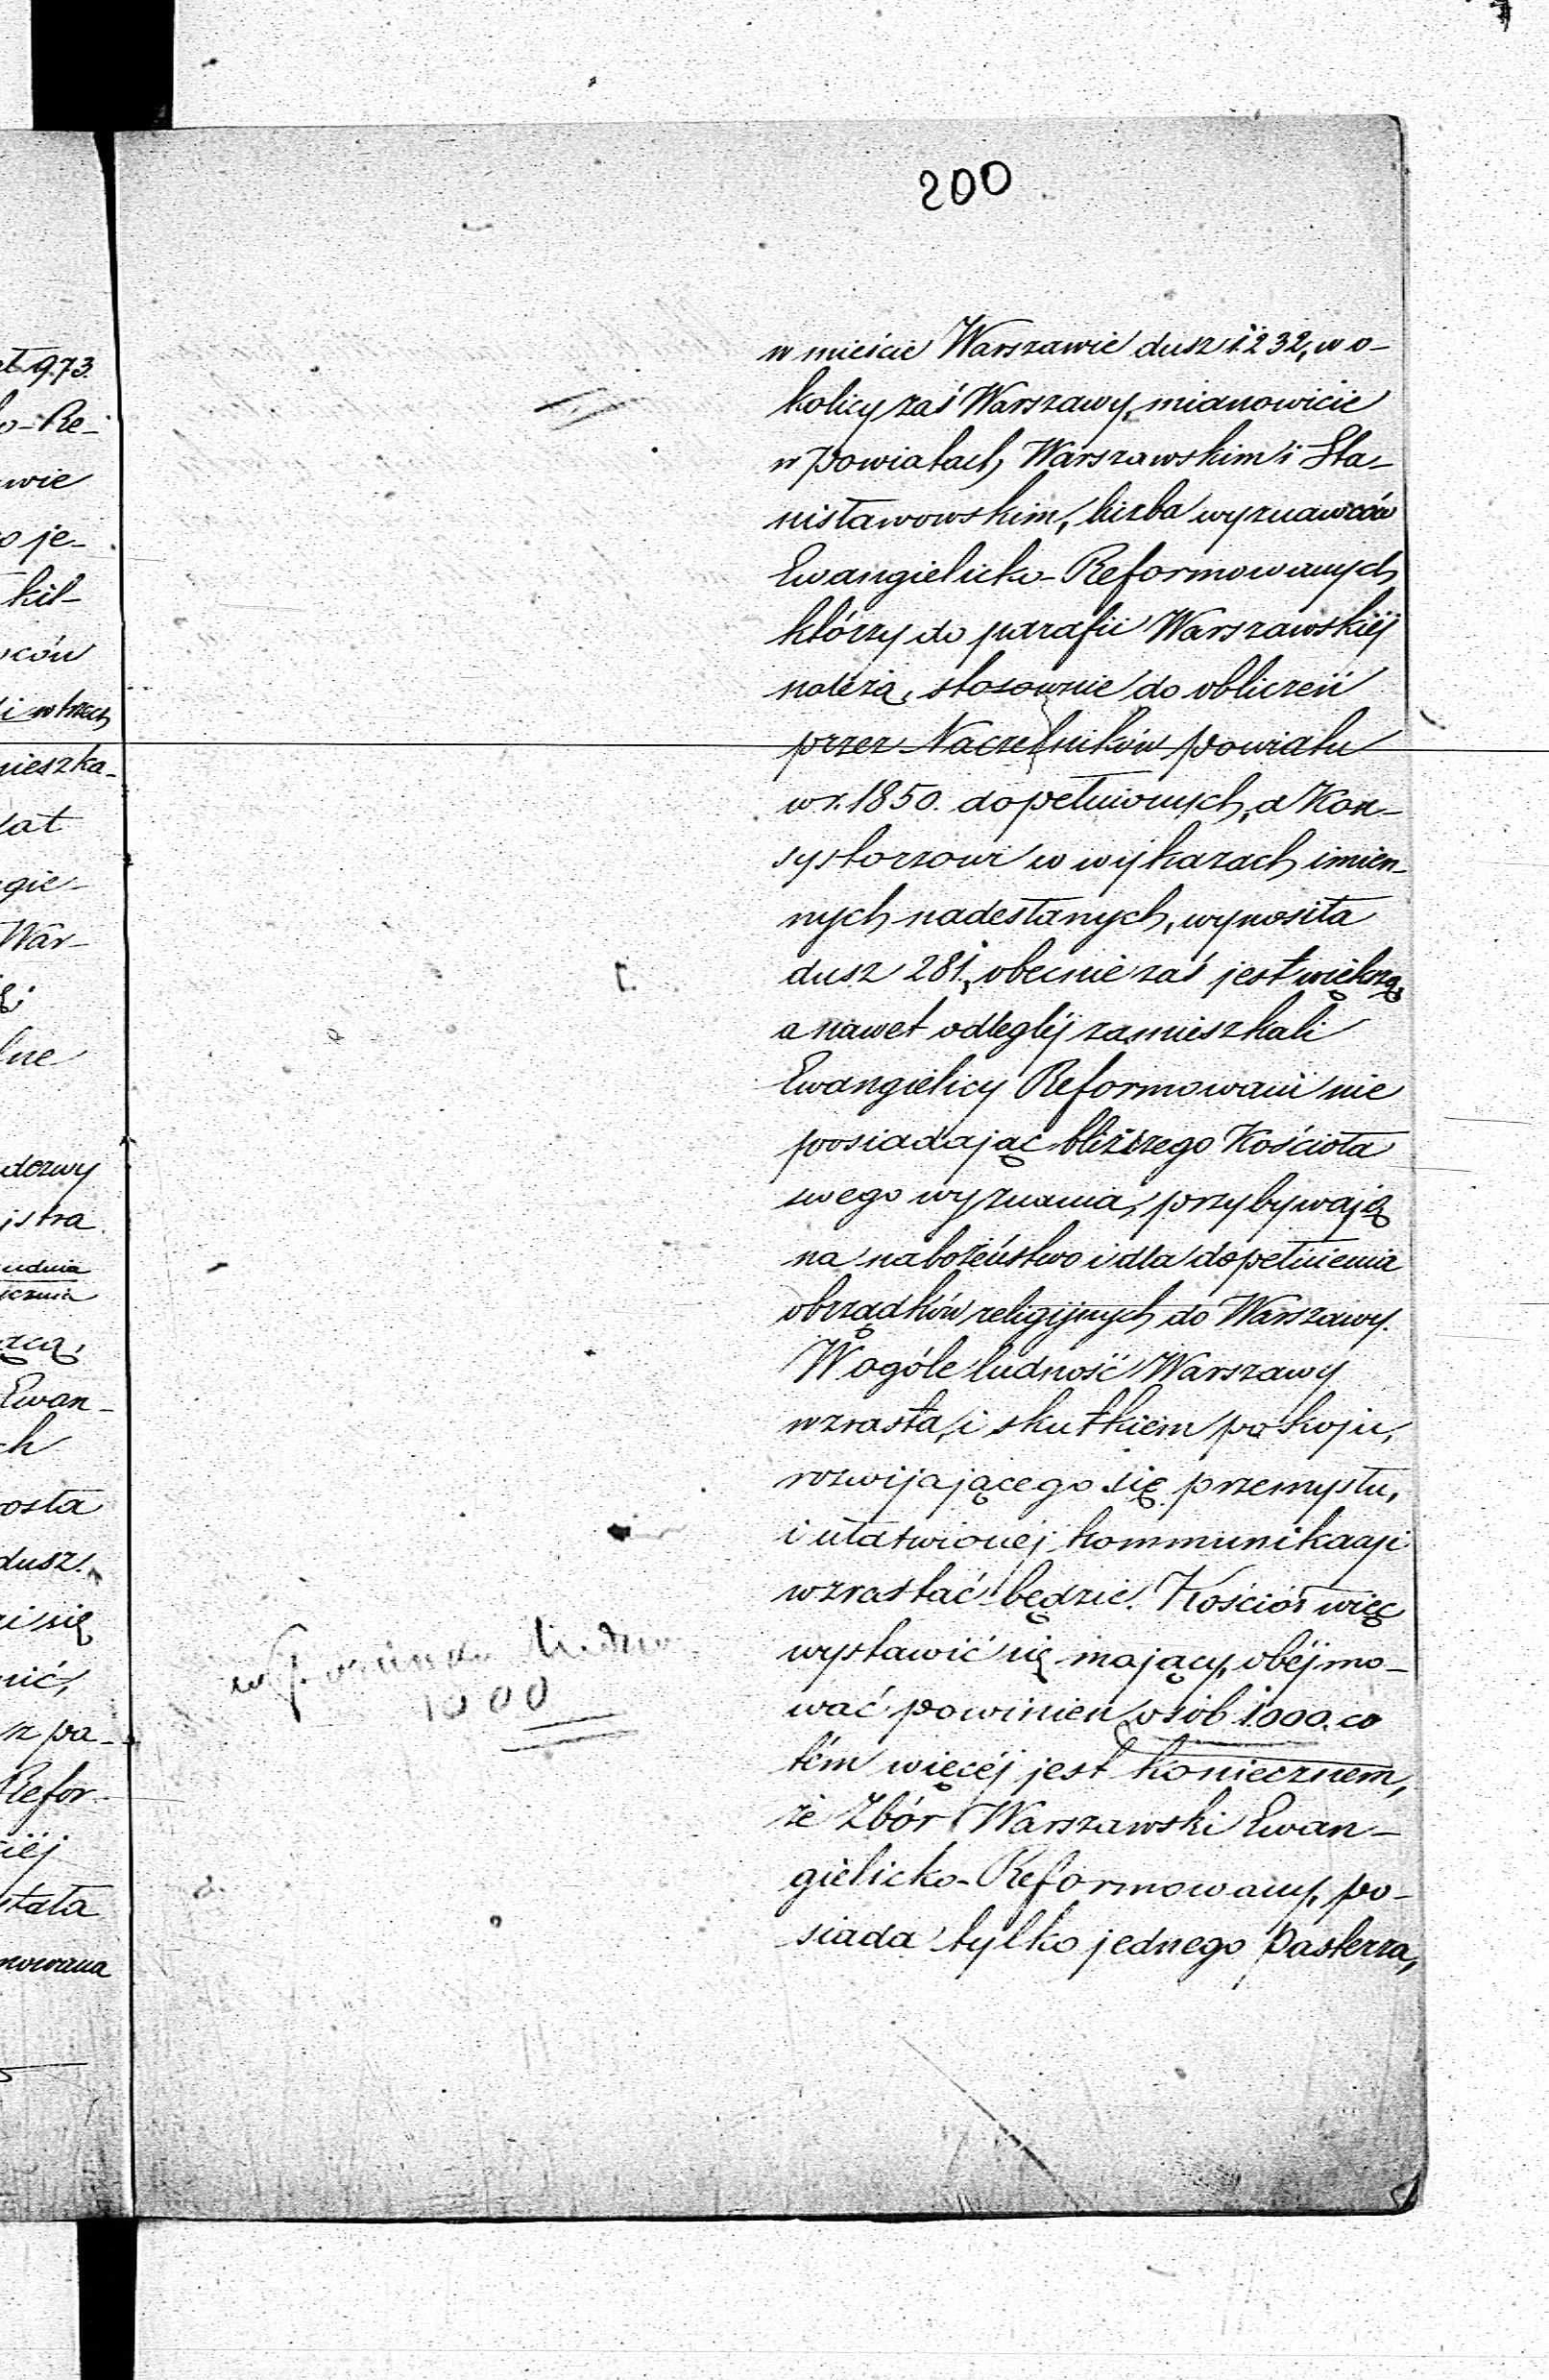 200
w mieście Warszawie dusz 1232, w o-
kolicy zaś Warszawy, mianowicie
w powiatach Warszawskim i Sta-
nisławowskim, liczba wyznawców
Ewangielicko-Reformowanych
którzy do parafii Warszawskiéj
należą, stosownie do obliczeń
przez Naczelników powiatu
w r. 1850. dopełnionych, a Kon-
systorzowi w wykazach imien-
nych nadesłanych, wynosiła
dusz 281, obecnie zaś jest większą,
a nawet odległéj zamieszkali
Ewangielicy Reformowani nie
posiadając bliższego Kościoła
swego wyznania, przybywają
na nabożeństwo i dla dopełnienia
obrządków religijnych do Warszawy.
W ogóle ludność Warszawy
wzrasta, i skutkiem pokoju,
rozwijającego się przemysłu,
i ułatwionéj kommunikacji
wzrastać będzie. Kościół więc
wystawić się mający, obéjmo-
wać powinien osób 1000. co
tém więcéj jest koniecznem,
że Zbór Warszawski Ewan-
gielicko-Reformowany, po-
siada tylko jednego Pasterza,
1000
973.
-Re-
wie
je-
kil-
ców
i w trzech
mieszka-
lat
gie-
War-
lne
dezwy
istra
ącą,
Ewan-
ch
osła
dusz.
się
nić,
z pa-
Refor-
iéj
stała
mowana